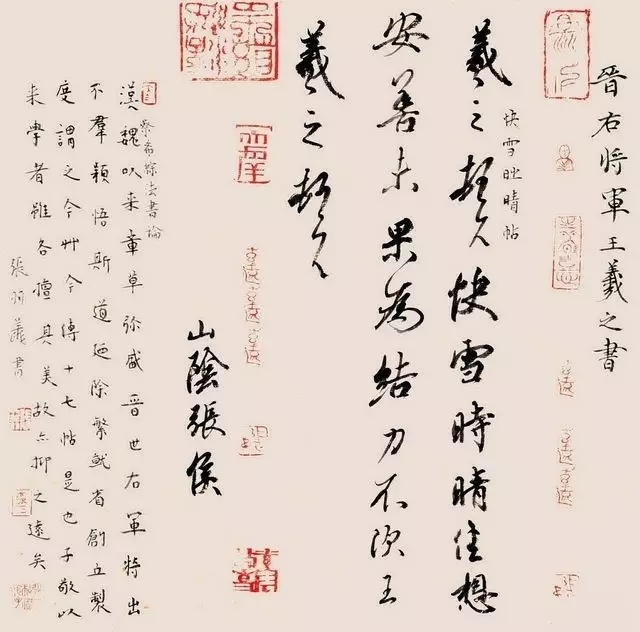 晉右將軍王羲之書
快雪時晴帖
羲之頓首快雪時晴佳想
安善未果為結力不次王
羲之頓首
山陰張侯
蔡希綜法書論
漢魏以来章草弥盛晉世右軍特出
不羣穎悟斯道廼除繁就省創立製
度謂之今艸今傳十七帖是也子敬以
来學者雖各擅其美故亦抑之遠矣
張羽羲書